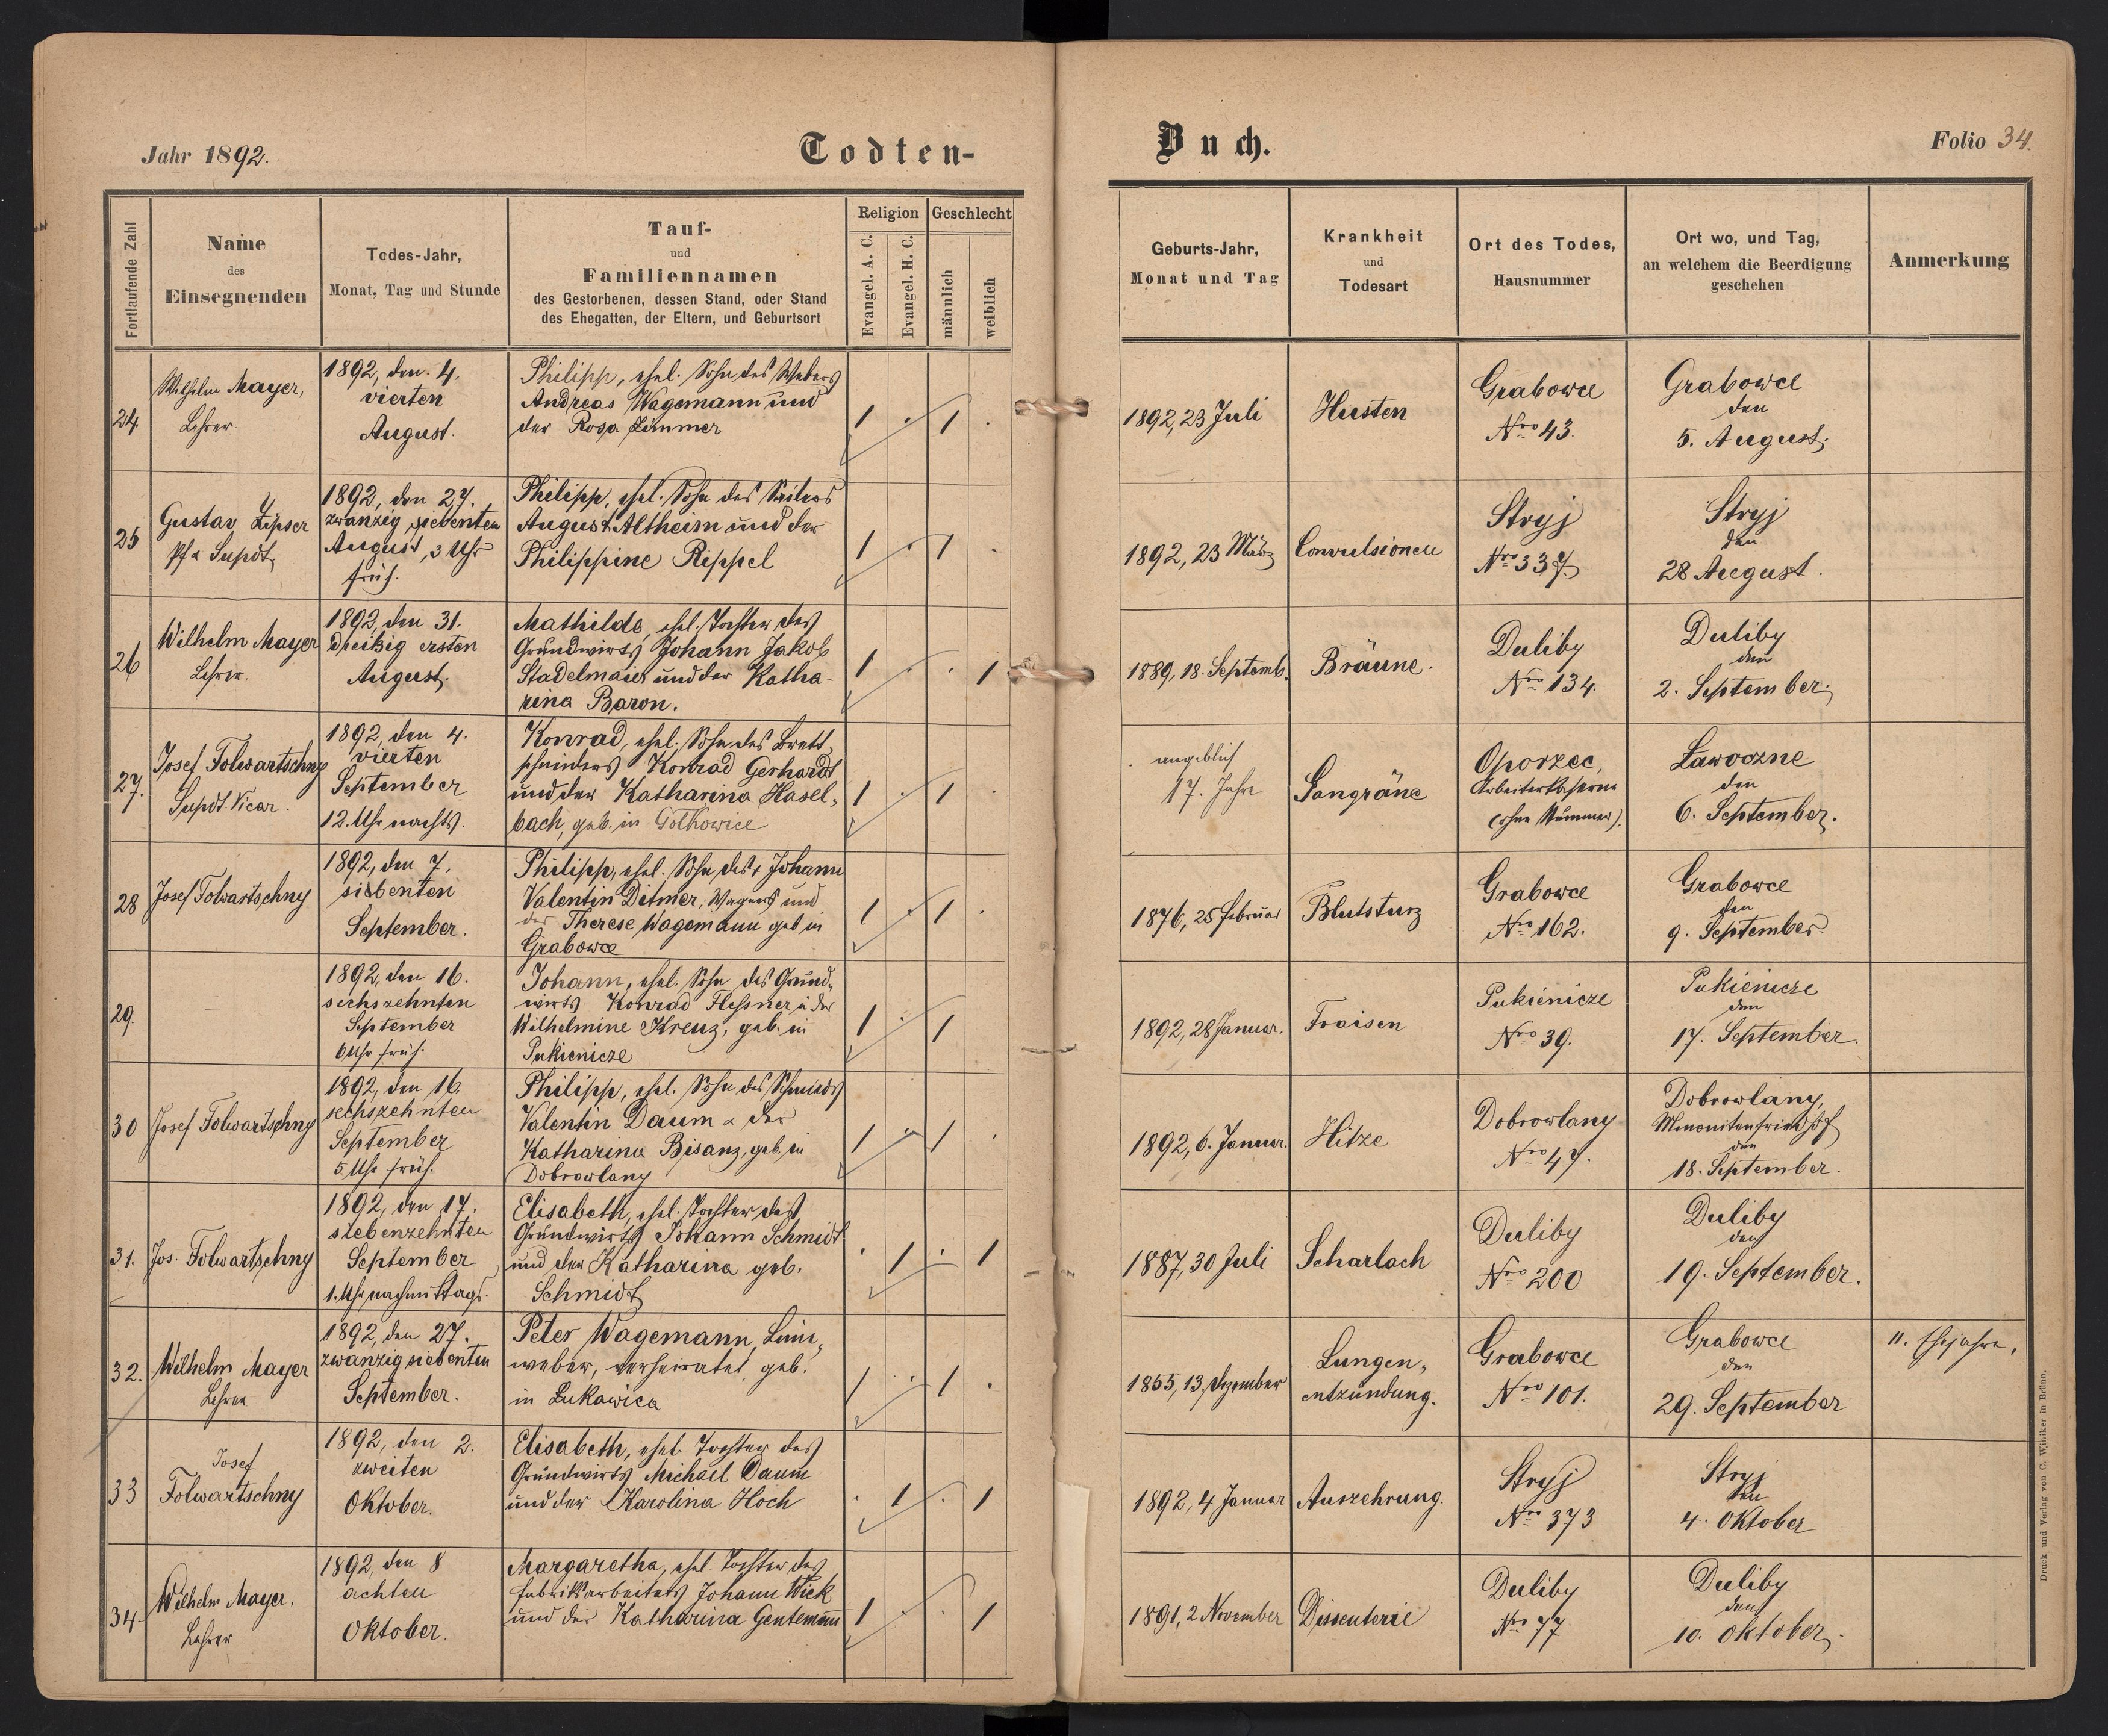 Jahr 1892.
Todten-
Fortlaufende Zahl
Name
des
Einsegnenden
Todes-Jahr,
Monat, Tag und Stunde
Tauf-
und
Familiennamen
des Gestorbenen, dessen Stand, oder Stand
des Ehegatten, der Eltern, und Geburtsort
Religion
Evangel. A. C.
Evangel. H. C.
Geschlecht
männlich
weiblich
24.
Wilhelm Mayer,
Lehrer
1892, den 4.
vierten
August.
Philipp, ehel. Sohn des Webers
Andreas Wagemann und
der Rosa Zimmer
1 . 1 .
25
Gustav Zipser
Pf. u. Supdt.
1892, den 27.
zwanzig siebenten
August, 3 Uhr
früh.
Philipp, ehel. Sohn des Seilers
August Altheim und der
Philippine Rippel
1 . 1 .
26
Wilhelm Mayer
Lehrer.
1892, den 31.
dreißig ersten
August.
Mathilde, ehel. Tochter des
Grundwirts Johann Jakob
Stadelmaier und der Katha-
rina Baron.
1 . . 1
27.
Josef Folwartschny
Supdt. Vicar.
1892, den 4.
vierten
September
12. Uhr nachts.
Konrad, ehel. Sohn des Brett-
schneiders Konrad Gerhardt
und der Katharina Hasel-
bach, geb. in
1 . 1 .
28
Josef Folwartschny
1892, den 7.
siebenten
September.
Philipp, ehel. Sohn des + Johann
Valentin Ditmer, Wagners und
der Therese Wagemann geb in
Grabowce
1 . 1 .
29.
1892, den 16.
sechszehnten
September
6 Uhr früh.
Johann, ehel. Sohn des Grund-
wirts Konrad Flessner u der
Wilhelmine Kreuz, geb. in
Pukienicze
1 1
30
Josef Folwartschny
1892, den 16.
sechszehnten
September
5 Uhr früh.
Philipp, ehel. Sohn des Schmieds
Valentin Daum & der
Katharina Bisanz, geb. in
Dobrowlany
1 . 1 .
31.
Jos. Folwartschny
1892, den 17.
siebenzehnten
September
1. Uhr nachmittags.
Elisabeth, ehel. Tochter des
Grundwirts Johann Schmidt
und der Katharina geb.
Schmidt
. 1 . 1
32.
Wilhelm Mayer
Lehrer
1892, den 27.
zwanzig siebenten
September.
Peter Wagemann, Lein-
weber, verheiratet, geb.
in Lukawica
1 . 1 .
33
Josef
Folwartschny
1892, den 2.
zweiten
Oktober.
Elisabeth, ehel. Tochter des
Grundwirts Michael Daum
und der Karolina Hoch
. 1 . 1
34.
Wilhelm Mayer,
Lehrer
1892, den 8
achten
Oktober.
Margaretha, ehel Tochter des
Fabriksarbeiters Johann Wick
und der Katharina Gentemann
1 . . 1
Buch.
Folio 34.
Geburts-Jahr,
Monat und Tag
Krankheit
und
Todesart
Ort des Todes,
Hausnummer
Ort wo, und Tag,
an welchem die Beerdigung
geschehen
Anmerkung
1892, 23 Juli
Husten
Grabowce
Nro 43.
Grabowce
den
5. August.
1892, 23 März
Convulsionen
Stryj
Nro 337
Stryj
den
28 August.
1889, 18. Septemb.
Bräune.
Duliby
Nro 134.
Duliby
den
2. September.
angeblich
17. Jahre
Gangräne
Oporzec,
Arbeiterkaserne
(ohne Nummer).
Ławoczne
den
6. September.
1876, 25 Februar
Blutsturz
Grabowce
Nro 162.
Grabowce
den
9. September
1892, 28 Januar.
Fraisen
Pukienicze
Nro 39.
Pukienicze
den
17. September.
1892, 6. Januar.
Hitze
Dobrowlany
Nro 47.
Dobrowlany,
Menonitenfriedhof
den
18. September.
1887, 30 Juli
Scharlach
Duliby
Nro 200
Duliby
den
19. September.
1855, 13. Dezember
Lungen-
entzündung.
Grabowce
Nro 101.
Grabowce
den
29. September
11. Ehejahre.
1892, 4 Januar
Auszehrung.
Stryj
Nro 373
Stryj
den
4. Oktober
1891, 2 November
Dissenterie
Duliby
Nro 77
Duliby
den
10. Oktober.
Druck und Verlag von C. Winiker in Brünn.